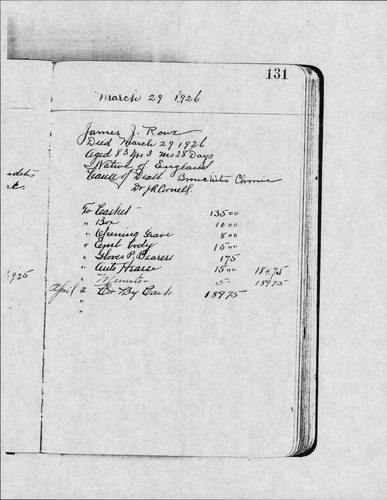 131
March 29 1926
James J. Rowe
Died March 29 1926
Aged 83 yrs 3 mo 28 Days
Native of England
Cause of Death Bronchitis Chronic
Dr Connell.
To Casket 135 00
" Box 10 00
" Opening Grave 8 00
" Emb body 15 00
" Gloves P. Bearers 1 75
" Auto Hearse 15 00 184.75
" Minister 5 - 189 75
April 2 Cr By Cash 189 75
"
"
1925